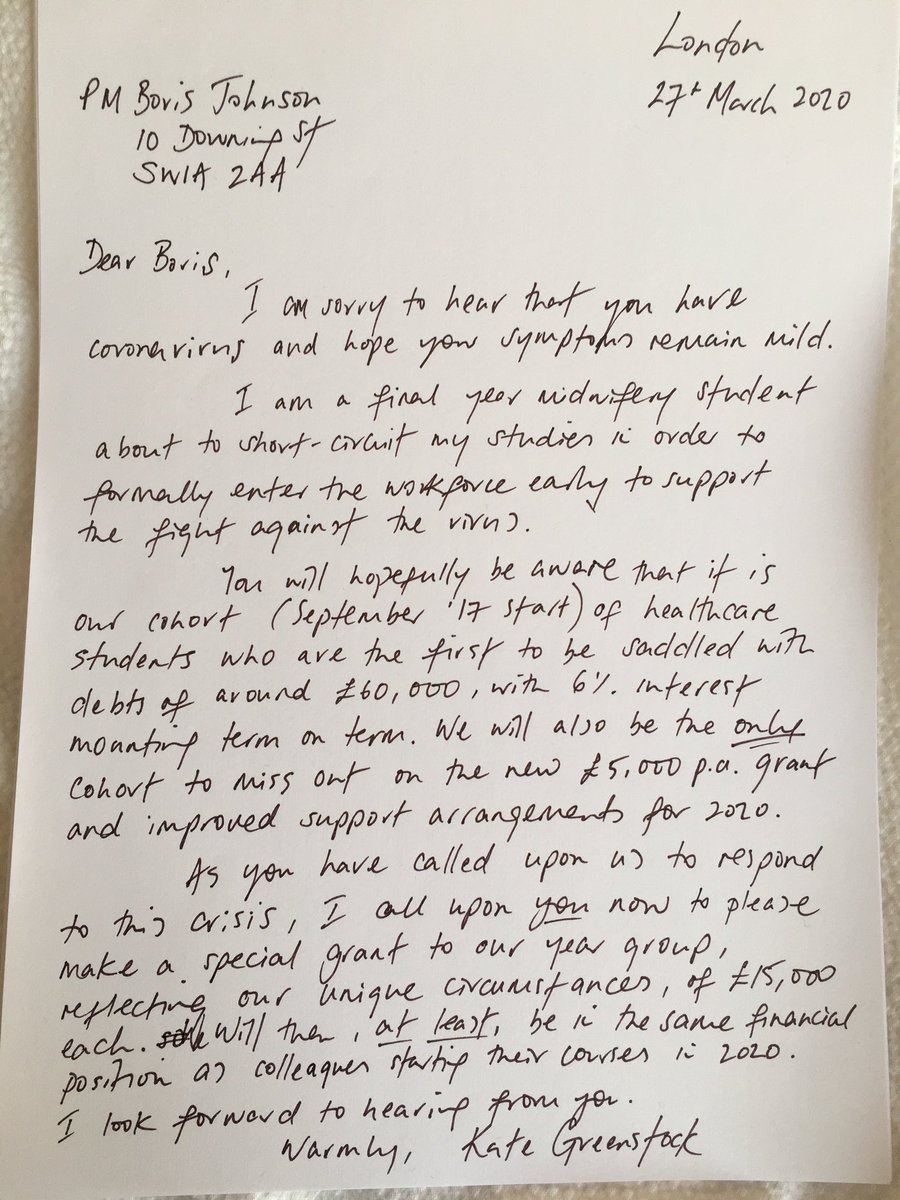 London
27th March 2020
PM Boris Johnson
10 Downing St
SW1A 2AA
Dear Boris,
I am sorry to hear that you have
coronavirus and hope your symptoms remain mild.
I am a final year midwifery student
about to short-circuit my studies in order to
formally enter the workforce early to support
the fight against the virus.
You will hopefully be aware that it is
our cohort (September '17 start) of healthcare
students who are the first to be saddled with
debts of around £60,000, with 6% interest
mounting term on term. We will also be the only
cohort to miss out on the new £5,000 p.a. grant
and improved support arrangements for 2020.
As you have called upon us to respond
to this crisis, I call upon you now to please
make a special grant to our year group,
reflecting our unique circumstances, of £15,000
each. Will then, at least, be in the same financial
position as colleagues starting their courses in 2020.
I look forward to hearing from you.
Warmly, Kate Greenstock